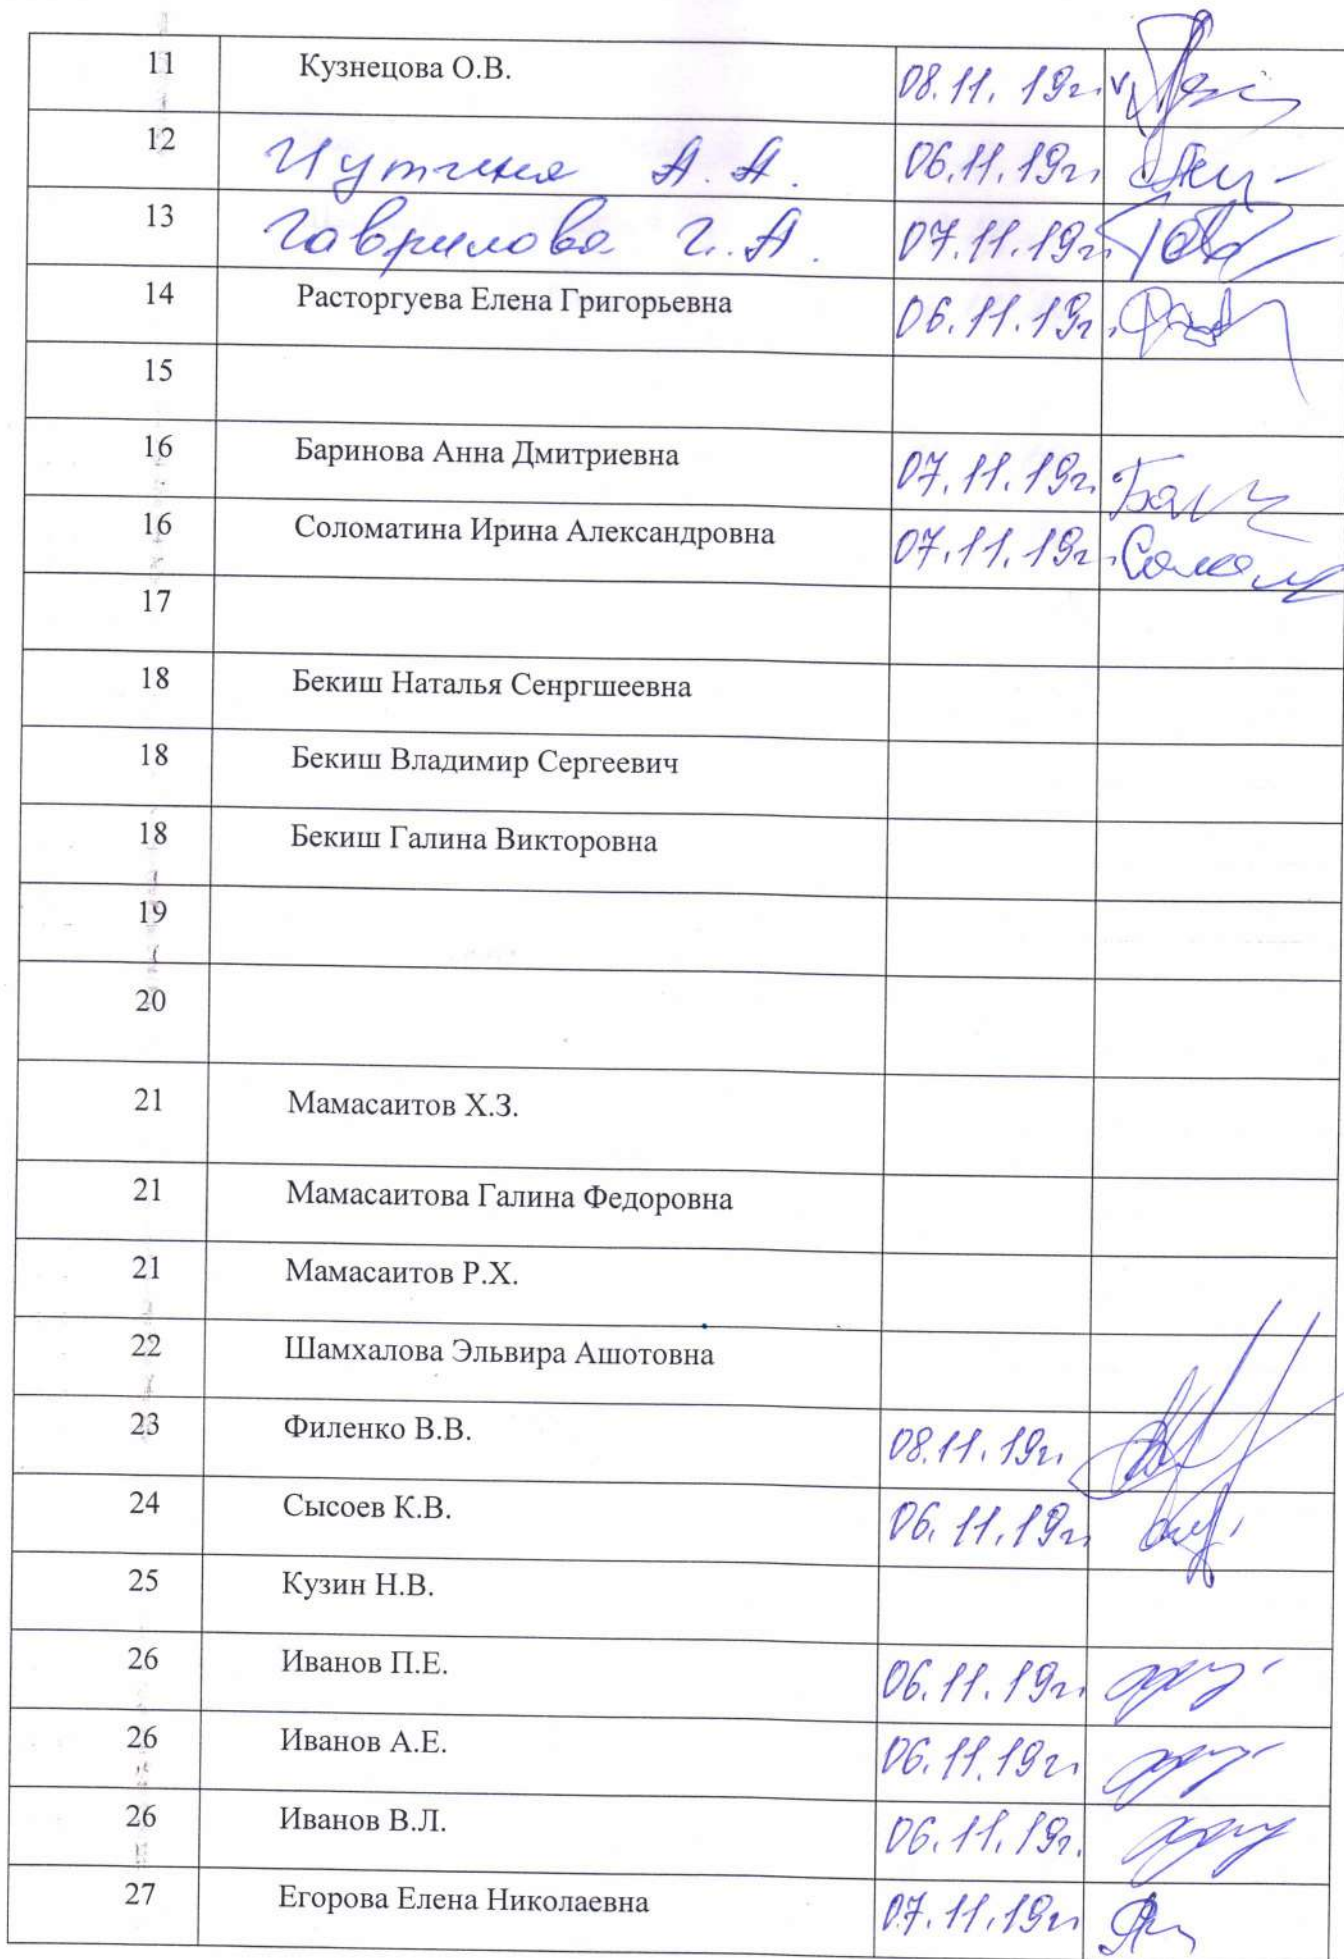 11 Кузнецова О.В. 08.11.19г.
12 А.А. 06.11.19г.
13 Гаврилова Г.А. 07.11.19г.
14 Расторгуева Елена Григорьевна 06.11.19г.
15
16 Баринова Анна Дмитриевна 07.11.19г.
16 Соломатина Ирина Александровна 07.11.19г.
17
18 Бекиш Наталья Сенргшеевна
18 Бекиш Владимир Сергеевич
18 Бекиш Галина Викторовна
19
20
21 Мамасаитов Х.З.
21 Мамасаитова Галина Федоровна
21 Мамасаитов Р.Х.
22 Шамхалова Эльвира Ашотовна
23 Филенко В.В. 08.11.19г.
24 Сысоев К.В. 06.11.19г.
25 Кузин Н.В.
26 Иванов П.Е. 06.11.19г.
26 Иванов А.Е. 06.11.19г.
26 Иванов В.Л. 06.11.19г.
27 Егорова Елена Николаевна 07.11.19г.